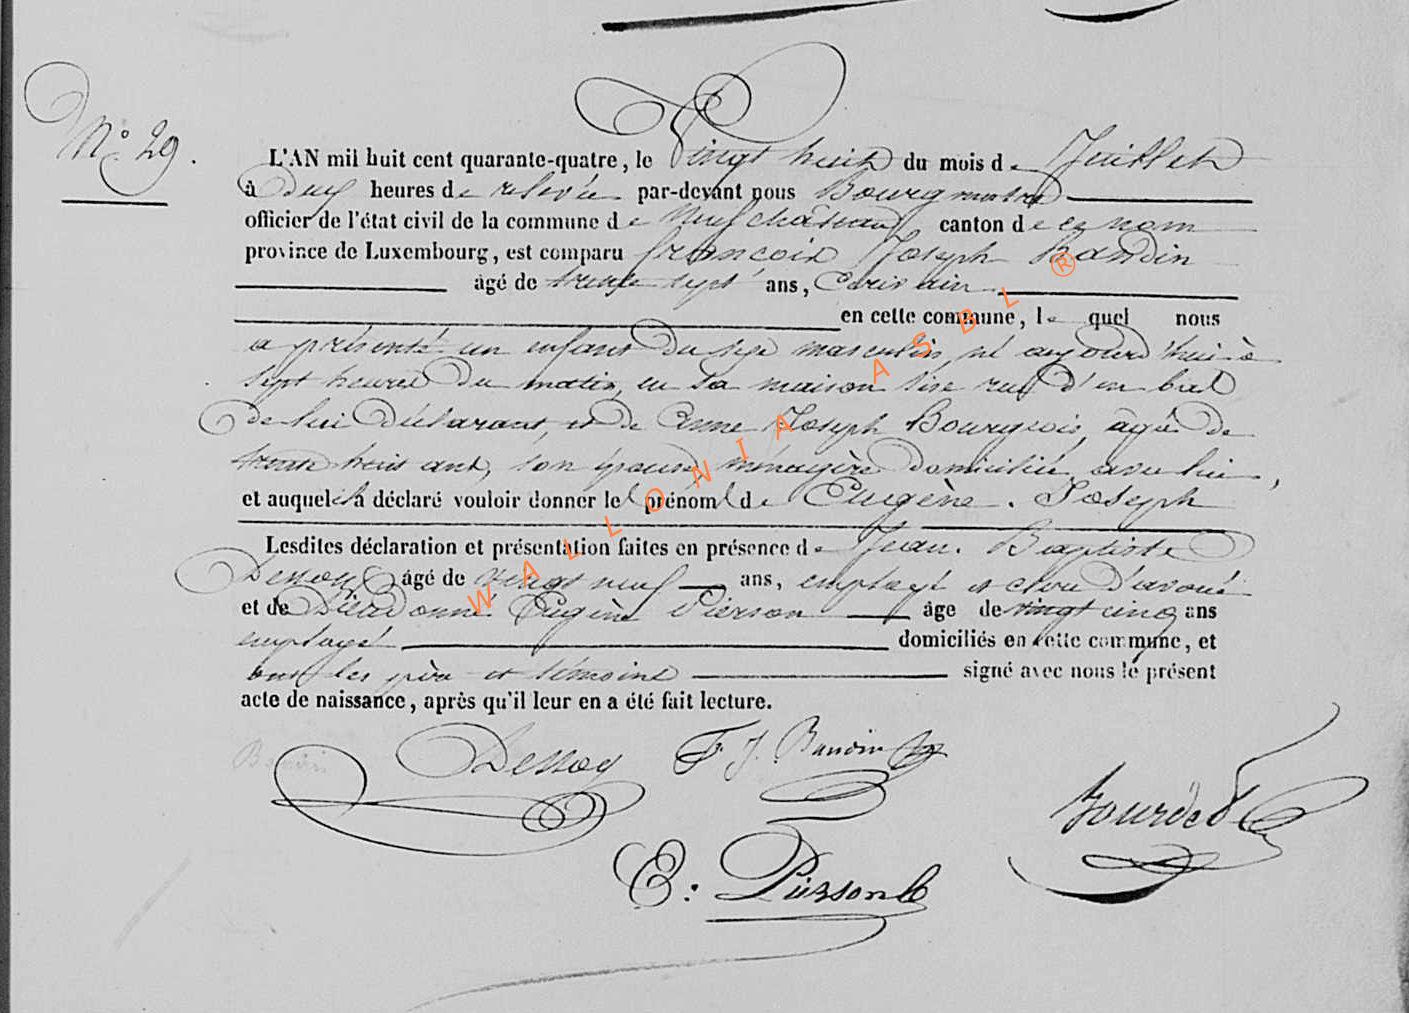 N° 29.
L'AN mil huit cent quarante-quatre, le Vingt huit du mois de Juillet
à Deux heures de relevée par-devant nous Bourgmestre
officier de l'état civil de la commune de Neufchâteau canton de ce nom
province de Luxembourg, est comparu François Joseph Baudin
âgé de trente sept ans, Ecrivain
en cette commune, lequel nous
a présenté un enfant du sexe masculin, né aujourd'hui à
sept heures du matin, en sa maison sise rue d'en bas
de lui déclarant, et de Anne Joseph Bourgeois, âgée de
trente huit ans, son épouse ménagère domiciliée avec lui,
et auquel il a déclaré vouloir donner les prénoms de Eugène. Joseph
Lesdites déclaration et présentation faites en présence de Jean. Baptiste
Dessoy âgé de vingt neuf ans, employé et clerc d'avoué
et de Dieudonné Eugène Pierson âgé de vingt cinq ans
employé domiciliés en cette commune, et
ont les père et témoins signé avec nous le présent
acte de naissance, après qu'il leur en a été fait lecture.
Dessoy F. J. Baudin
E: Pierson
WALLONIA ASBL ®